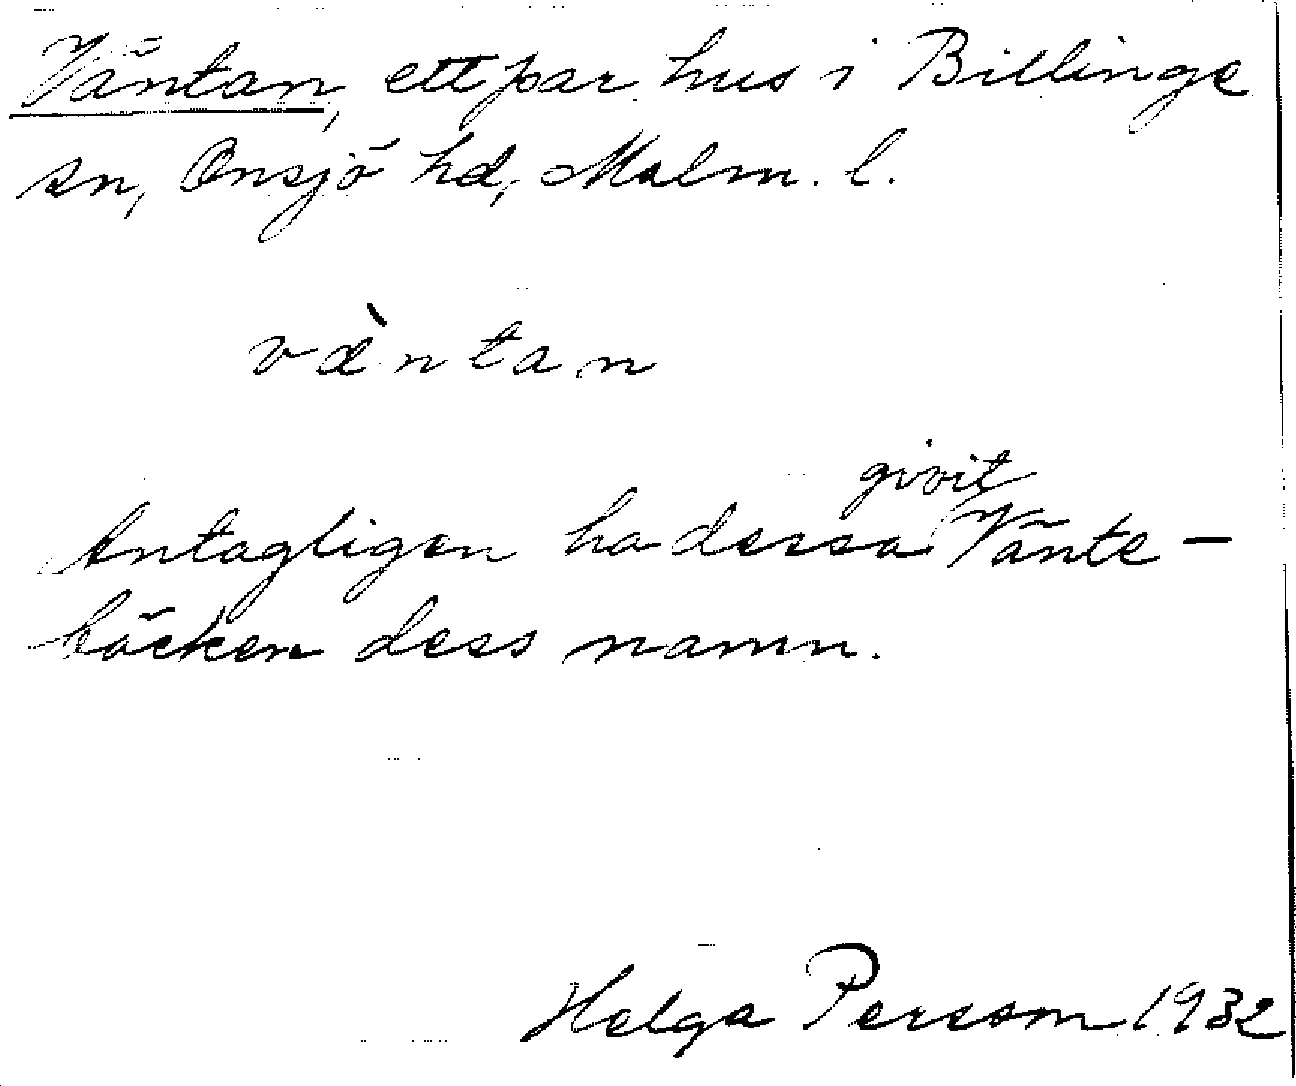 Väntan, ett par hus i Billinge
sn, Onsjö hd, Malm. l.
væ̀ntan
givit
Antagligen ha dessa Vänte-
bäcken dess namn.
Helga Persson 1932